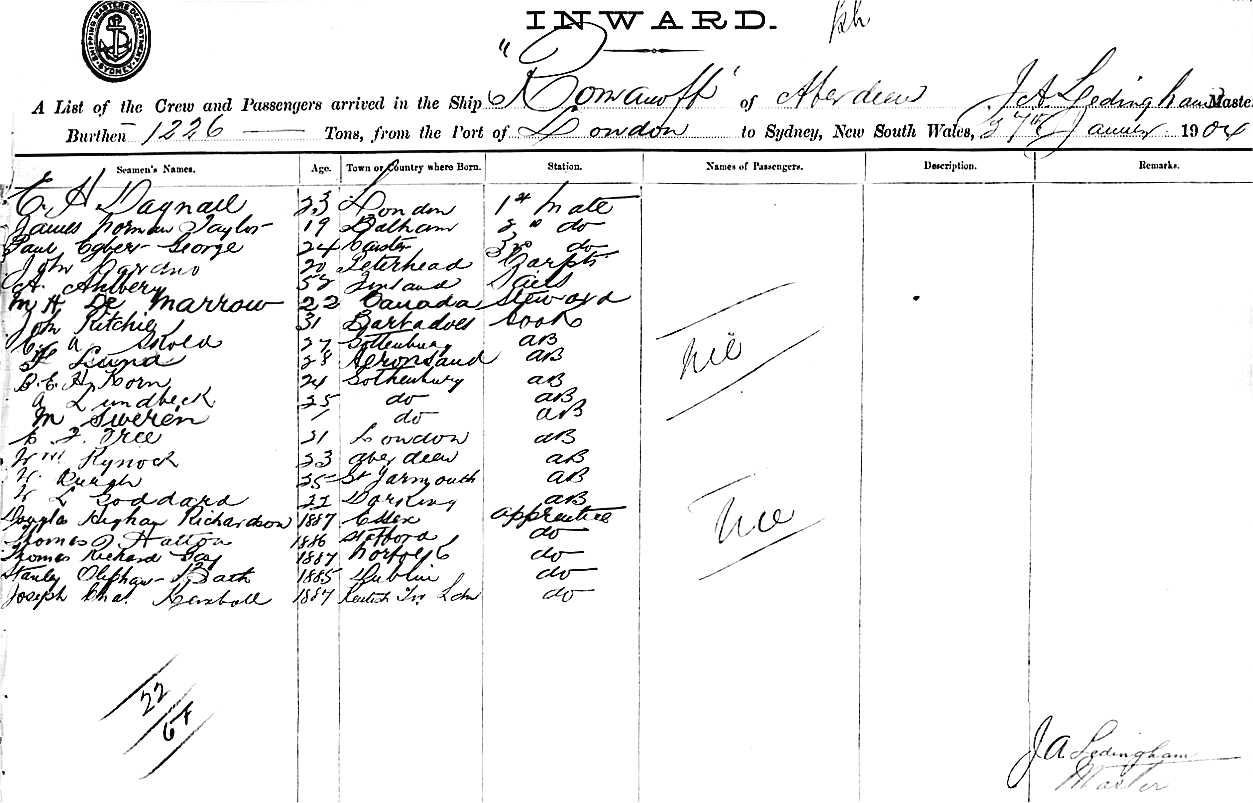 SHIPPING MASTERS DEPARTMENT SYDNEY
INWARD.
A List of the Crew and Passengers arrived in the Ship "Romanoff" of Aberdeen J A Ledingham Master
Burthen 1226 Tons, from the Port of London to Sydney, New South Wales, 27th 1904
Seamen's Names. Age. Town or Country where Born. Station. Names of Passengers. Description. Remarks.
E. H. Dagnall 23 London 1st Mate
James Norman Taylor 19 Balham 2nd do
Paul Egbert George 24 3rd do
John 20 Peterhead Carptr
A. Ahlberg 52 Finland Sails
M H De Marrow 22 Canada Steward
John Ritchie 31 Barbadoes Cook
27 Gottenburg AB
F Lund 28 AB
B. E. H. Korn 24 Gothenburg AB
A Lundbeck 25 do AB
M Sweren do AB
F. Tree 21 London AB
Wm Kynoch 33 Aberdeen AB
W. Burgh 25 Gt Yarmouth AB
W L Goddard 22 Dorking AB
Douglas Higham Richardson 1887 Essex apprentice
Thomas J Hatton 1886 do
Thomas Richard 1887 Norfolk do
Stanley Oliphant Bath 1885 Dublin do
Joseph Chas. 1887 Kentish Tn Ldn do
Nil
Nil
22
J A Ledingham
Master